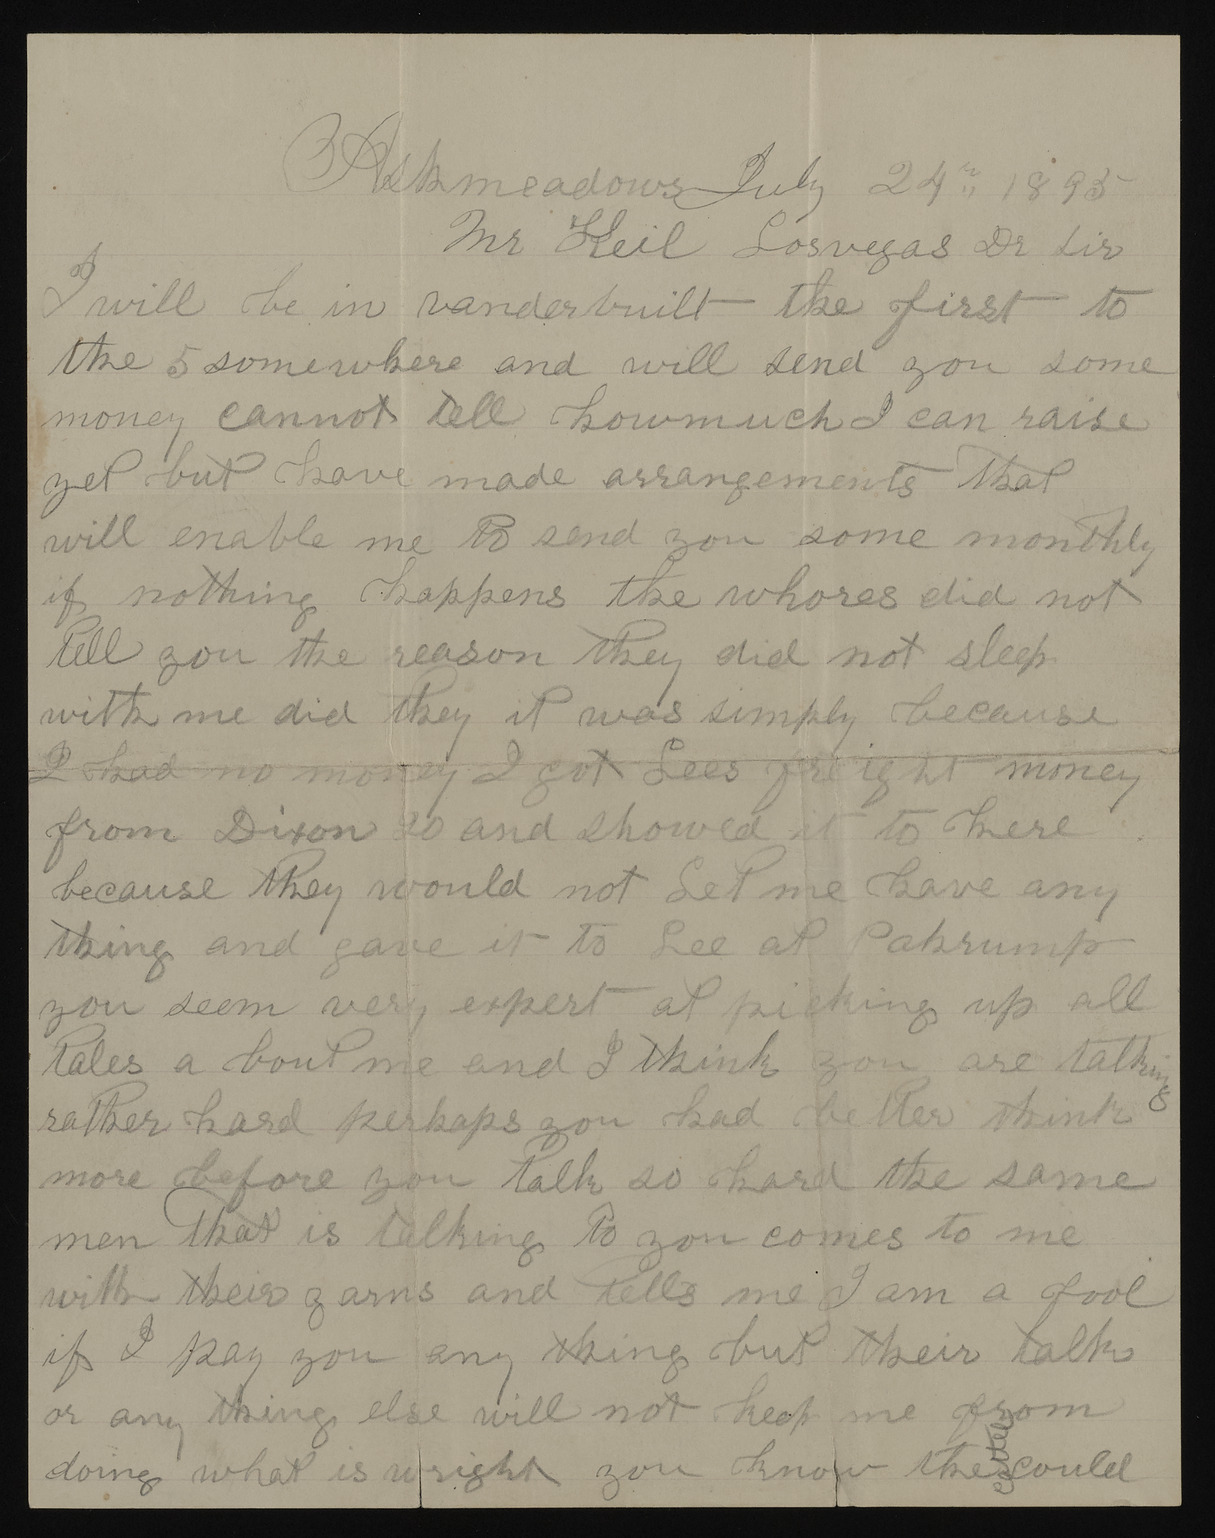 Ashmeadows July 24th 1895
Mr Keil Losvegas Dr Sir
I will be in vanderbuilt the first to
the 5 somewhere and will send you some
money cannot tell howmuch I can raise
yet but have made arrangements that
will enable me to send you some monthly
if nothing happens the whores did not
tell you the reason they did not sleep
with me did they it was simply because
I had no money I got Lees freight money
from Dixon 20 and showed it to here
because they would not Let me have any
thing and gave it to Lee at Pahrump
you seem very expert at picking up all
tales a bout me and I think you are talking
rather hard perhaps you had better think
more before you talk so hard the same
men that is talking to you comes to me
with their yarns and tells me I am a fool
if I pay you any thing but their talk
or any thing else will not keep me from
doing what is wright you know the could